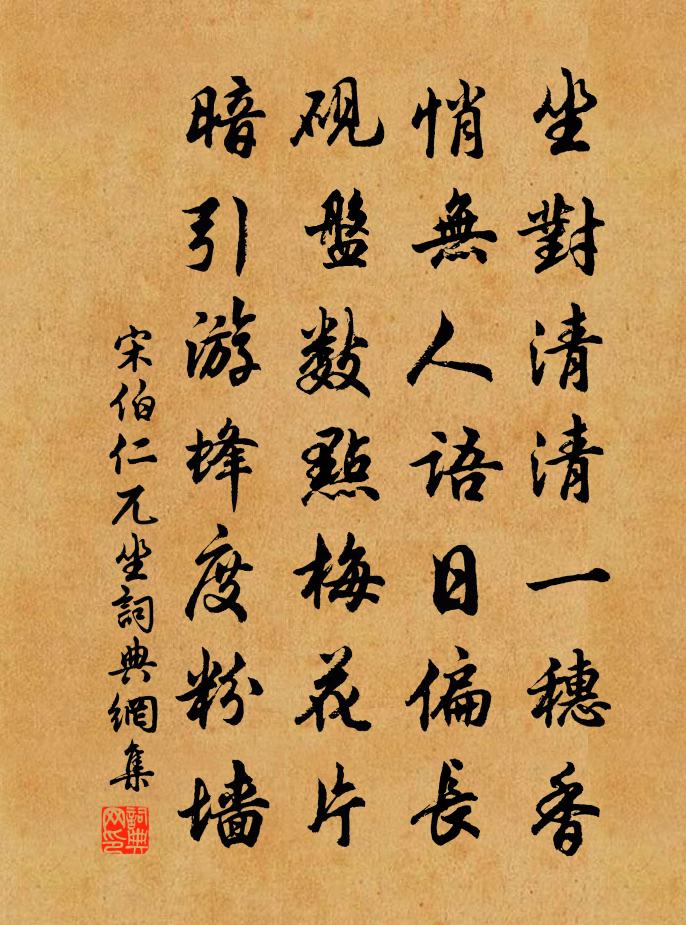 坐對清清一穗香
悄無人語日偏長
硯盤数點梅花片
暗引游蜂度粉墙
宋伯仁兀坐詞典網集
詞典网印